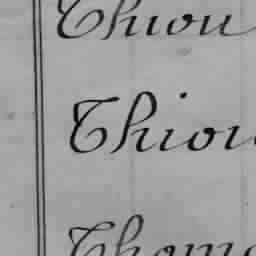 Thiou
Thiou
Thom